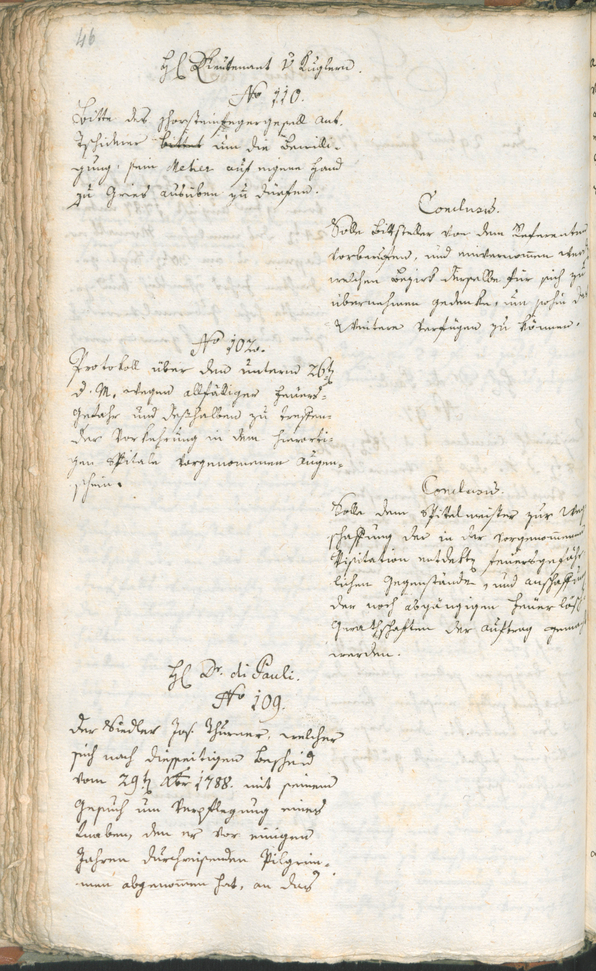 46
H Lieutenant v Kuglern.
No 110.
Bitte des Rhorsteinfegergesell Ant.
Tschiderer um die Bewilli-
gung, sein Metier auf eigene Hand
zu Gries ausüben zu dürfen.
Conclusus.
Solle Bittsteller vor dem Referenten
vorberufen, und einvernommen werd
welchen Bezirk derselbe für sich zu
übernehmen gedenke, um sohin das
Weitere verfügen zu können.
No 102.
Protokoll über den unterm 26t
d. M. wegen allfälliger Feuers-
gefahr und deßhalben zu treffen-
der Vorkehrung in dem hierorti-
gen Spitale vorgenomenen Augen-
schein.
Conclusus.
Solle dem Spitelmeister zur Weg
schaffung der in der vorgenommenen
Visitation entdekt feuersgefähr
lichen Gegenstände, und Anschaffung
der noch abgängigen Feuer lösch
Geräthschaften der Auftrag gemach
werden.
H Dr. di Pauli.
No 109.
Der Siedler Jos. Thurner, welcher
sich nach diesseitigen Bescheid
vom 29t Xbr 1788. mit seinem
Gesuch um Verpflegung eines
Knaben, den er vor einigen
Jahren durchreisenden Pilgrim-
men abgenommen hat, an das